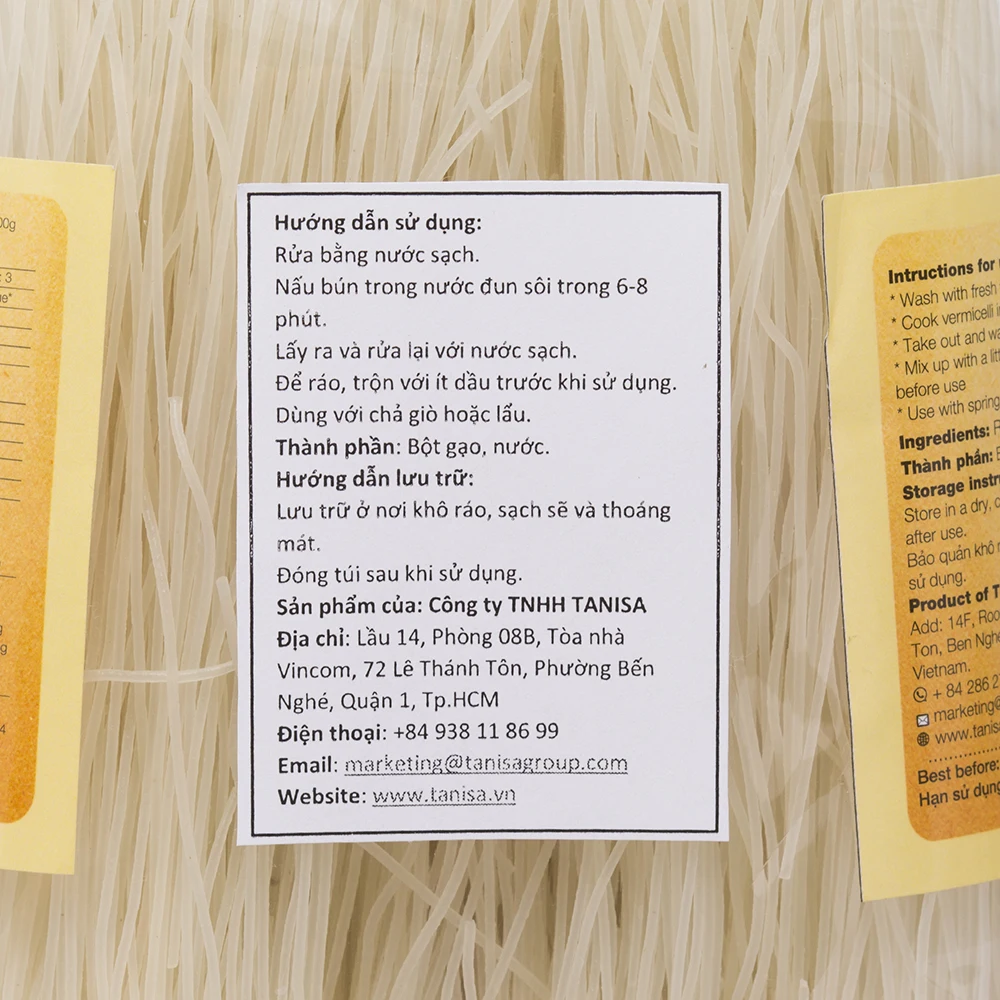 00g
3
ue*
4
Hướng dẫn sử dụng:
Rửa bằng nước sạch.
Nấu bún trong nước đun sôi trong 6-8
phút.
Lấy ra và rửa lại với nước sạch.
Để ráo, trộn với ít dầu trước khi sử dụng.
Dùng với chả giò hoặc lẩu.
Thành phần: Bột gạo, nước.
Hướng dẫn lưu trữ:
Lưu trữ ở nơi khô ráo, sạch sẽ và thoáng
mát.
Đóng túi sau khi sử dụng.
Sản phẩm của: Công ty TNHH TANISA
Địa chỉ: Lầu 14, Phòng 08B, Tòa nhà
Vincom, 72 Lê Thánh Tôn, Phường Bến
Nghé, Quận 1, Tp.HCM
Điện thoại: +84 938 11 86 99
Email: marketing@tanisagroup.com
Website: www.tanisa.vn
Intructions for
* Wash with fresh
* Cook vermicelli
* Take out and
* Mix up with a
before use
* Use with spring
Ingredients:
Thành phần:
Storage
Store in a dry,
after use.
Bảo quản khô
sử dụng.
Product of
Add: 14F,
Ton, Ben
Vietnam.
+ 84 286
marketing@
www.
Best before:
Hạn sử dụng